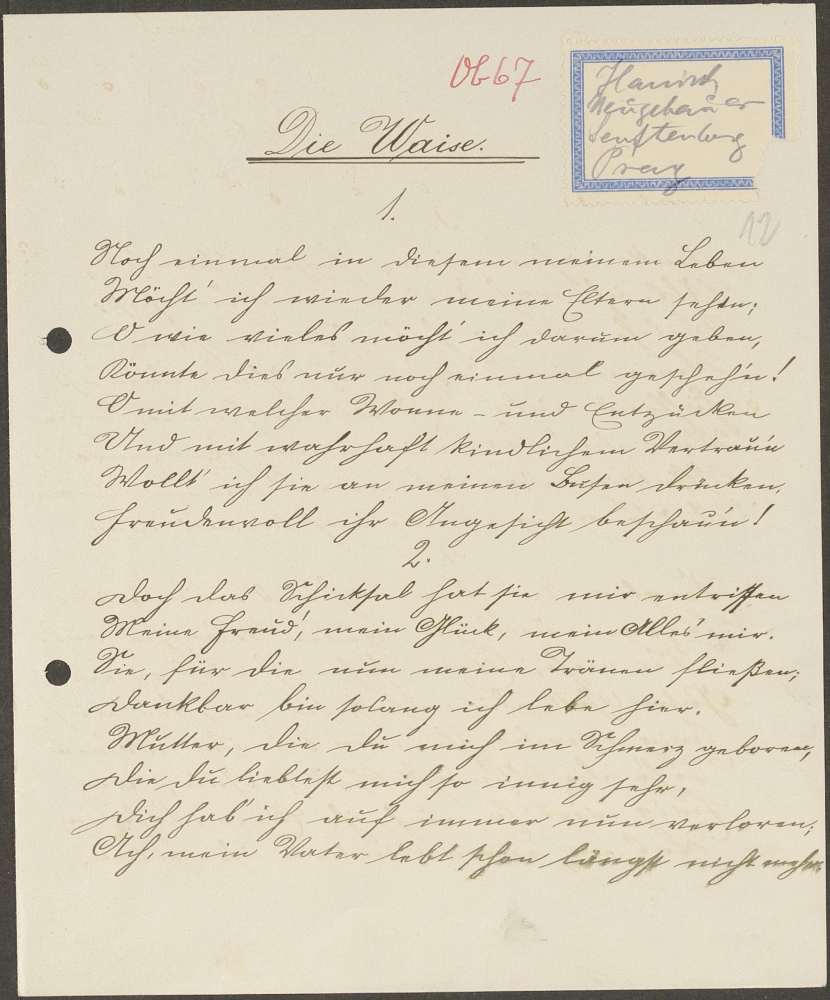 Ob 67
Hanisch
Neugebauer
Senftenberg
Prag
Die Waise.
12
1.
Noch einmal in diesem meinem Leben
Möcht' ich wieder meine Eltern sehen;
O wie vieles möcht' ich darum geben,
Könnte dies nur noch einmal gescheh'n!
O mit welcher Wonne - und Entzücken
Und mit wahrhaft kindlichem Vertrau'n
Wollt' ich sie an meinen Busen drücken,
Freudenvoll ihr Angesicht beschau'n!
2.
Doch das Schicksal hat sie mir entrissen
Meine Freud', mein Glück, mein Alles mir.
Sie, für die nun meine Tränen fließen;
Dankbar bin solang ich lebe hier.
Mutter, die du mich im Schmerz geboren,
Die du liebtest mich so innig sehr,
Dich hab' ich auf immer nun verloren;
Ach, mein Vater lebt schon längst nicht mehr.